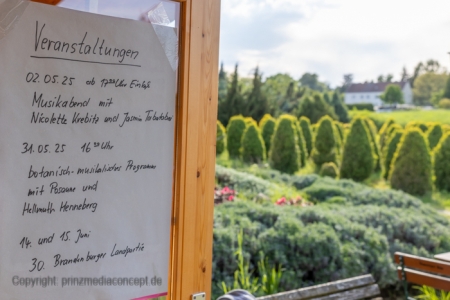 Veranstaltungen
02.05.25 ab 17³⁰ Uhr Einlaß
Musikabend mit
Nicolette Krebitz und Jasmin Tabatabai
31.05.25 16³⁰
botanisch-musikalisches Programm
mit Posaune und
Hellmuth Henneberg
14. und 15. Juni
30. Brandenburger Landpartie
Copyright: prinzmediaconcept.de